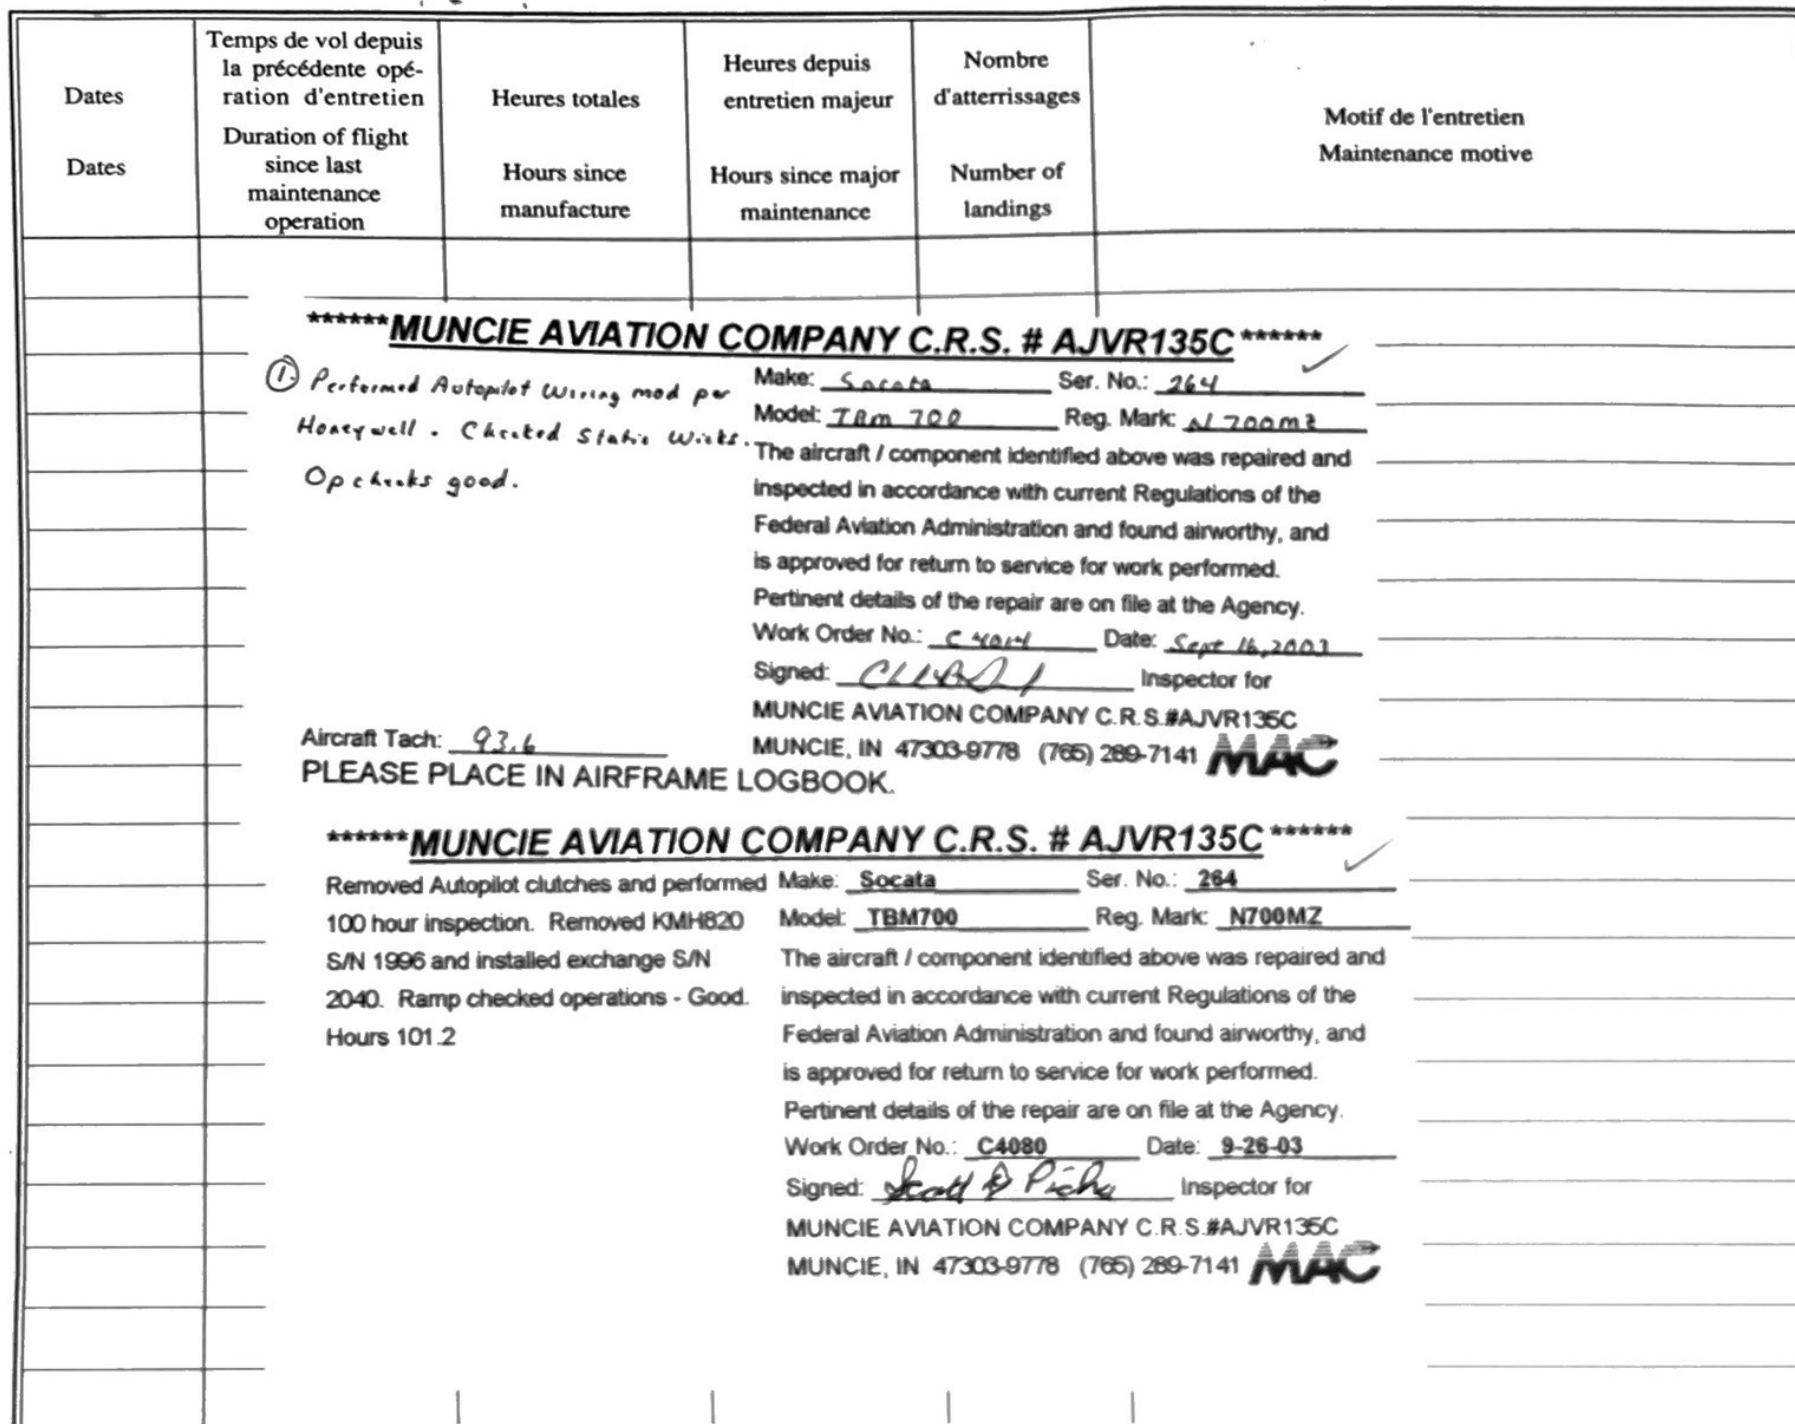 Dates
Dates
Temps de vol depuis
la précédente opé-
ration d'entretien
Duration of flight
since last
maintenance
operation
Heures totales
Hours since
manufacture
Heures depuis
entretien majeur
Hours since major
maintenance
Nombre
d'atterrissages
Number of
landings
Motif de l'entretien
Maintenance motive
******MUNCIE AVIATION COMPANY C.R.S. # AJVR135C******
① Performed Autopilot Wiring mod per
Honeywell. Checked Static Wicks.
Op checks good.
Make: Socata Ser. No.: 264
Model: TBM 700 Reg. Mark: N700MZ
The aircraft / component identified above was repaired and
inspected in accordance with current Regulations of the
Federal Aviation Administration and found airworthy, and
is approved for return to service for work performed.
Pertinent details of the repair are on file at the Agency.
Work Order No.: C4014 Date: Sept 16, 2003
Signed: Inspector for
MUNCIE AVIATION COMPANY C.R.S.#AJVR135C
MUNCIE, IN 47303-9778 (765) 289-7141 MAC
Aircraft Tach: 93.6
PLEASE PLACE IN AIRFRAME LOGBOOK.
******MUNCIE AVIATION COMPANY C.R.S. # AJVR135C******
Removed Autopilot clutches and performed
100 hour inspection. Removed KMH820
S/N 1996 and installed exchange S/N
2040. Ramp checked operations - Good.
Hours 101.2
Make: Socata Ser. No.: 264
Model: TBM700 Reg. Mark: N700MZ
The aircraft / component identified above was repaired and
inspected in accordance with current Regulations of the
Federal Aviation Administration and found airworthy, and
is approved for return to service for work performed.
Pertinent details of the repair are on file at the Agency.
Work Order No.: C4080 Date: 9-26-03
Signed: Scott Inspector for
MUNCIE AVIATION COMPANY C.R.S.#AJVR135C
MUNCIE, IN 47303-9778 (765) 289-7141 MAC